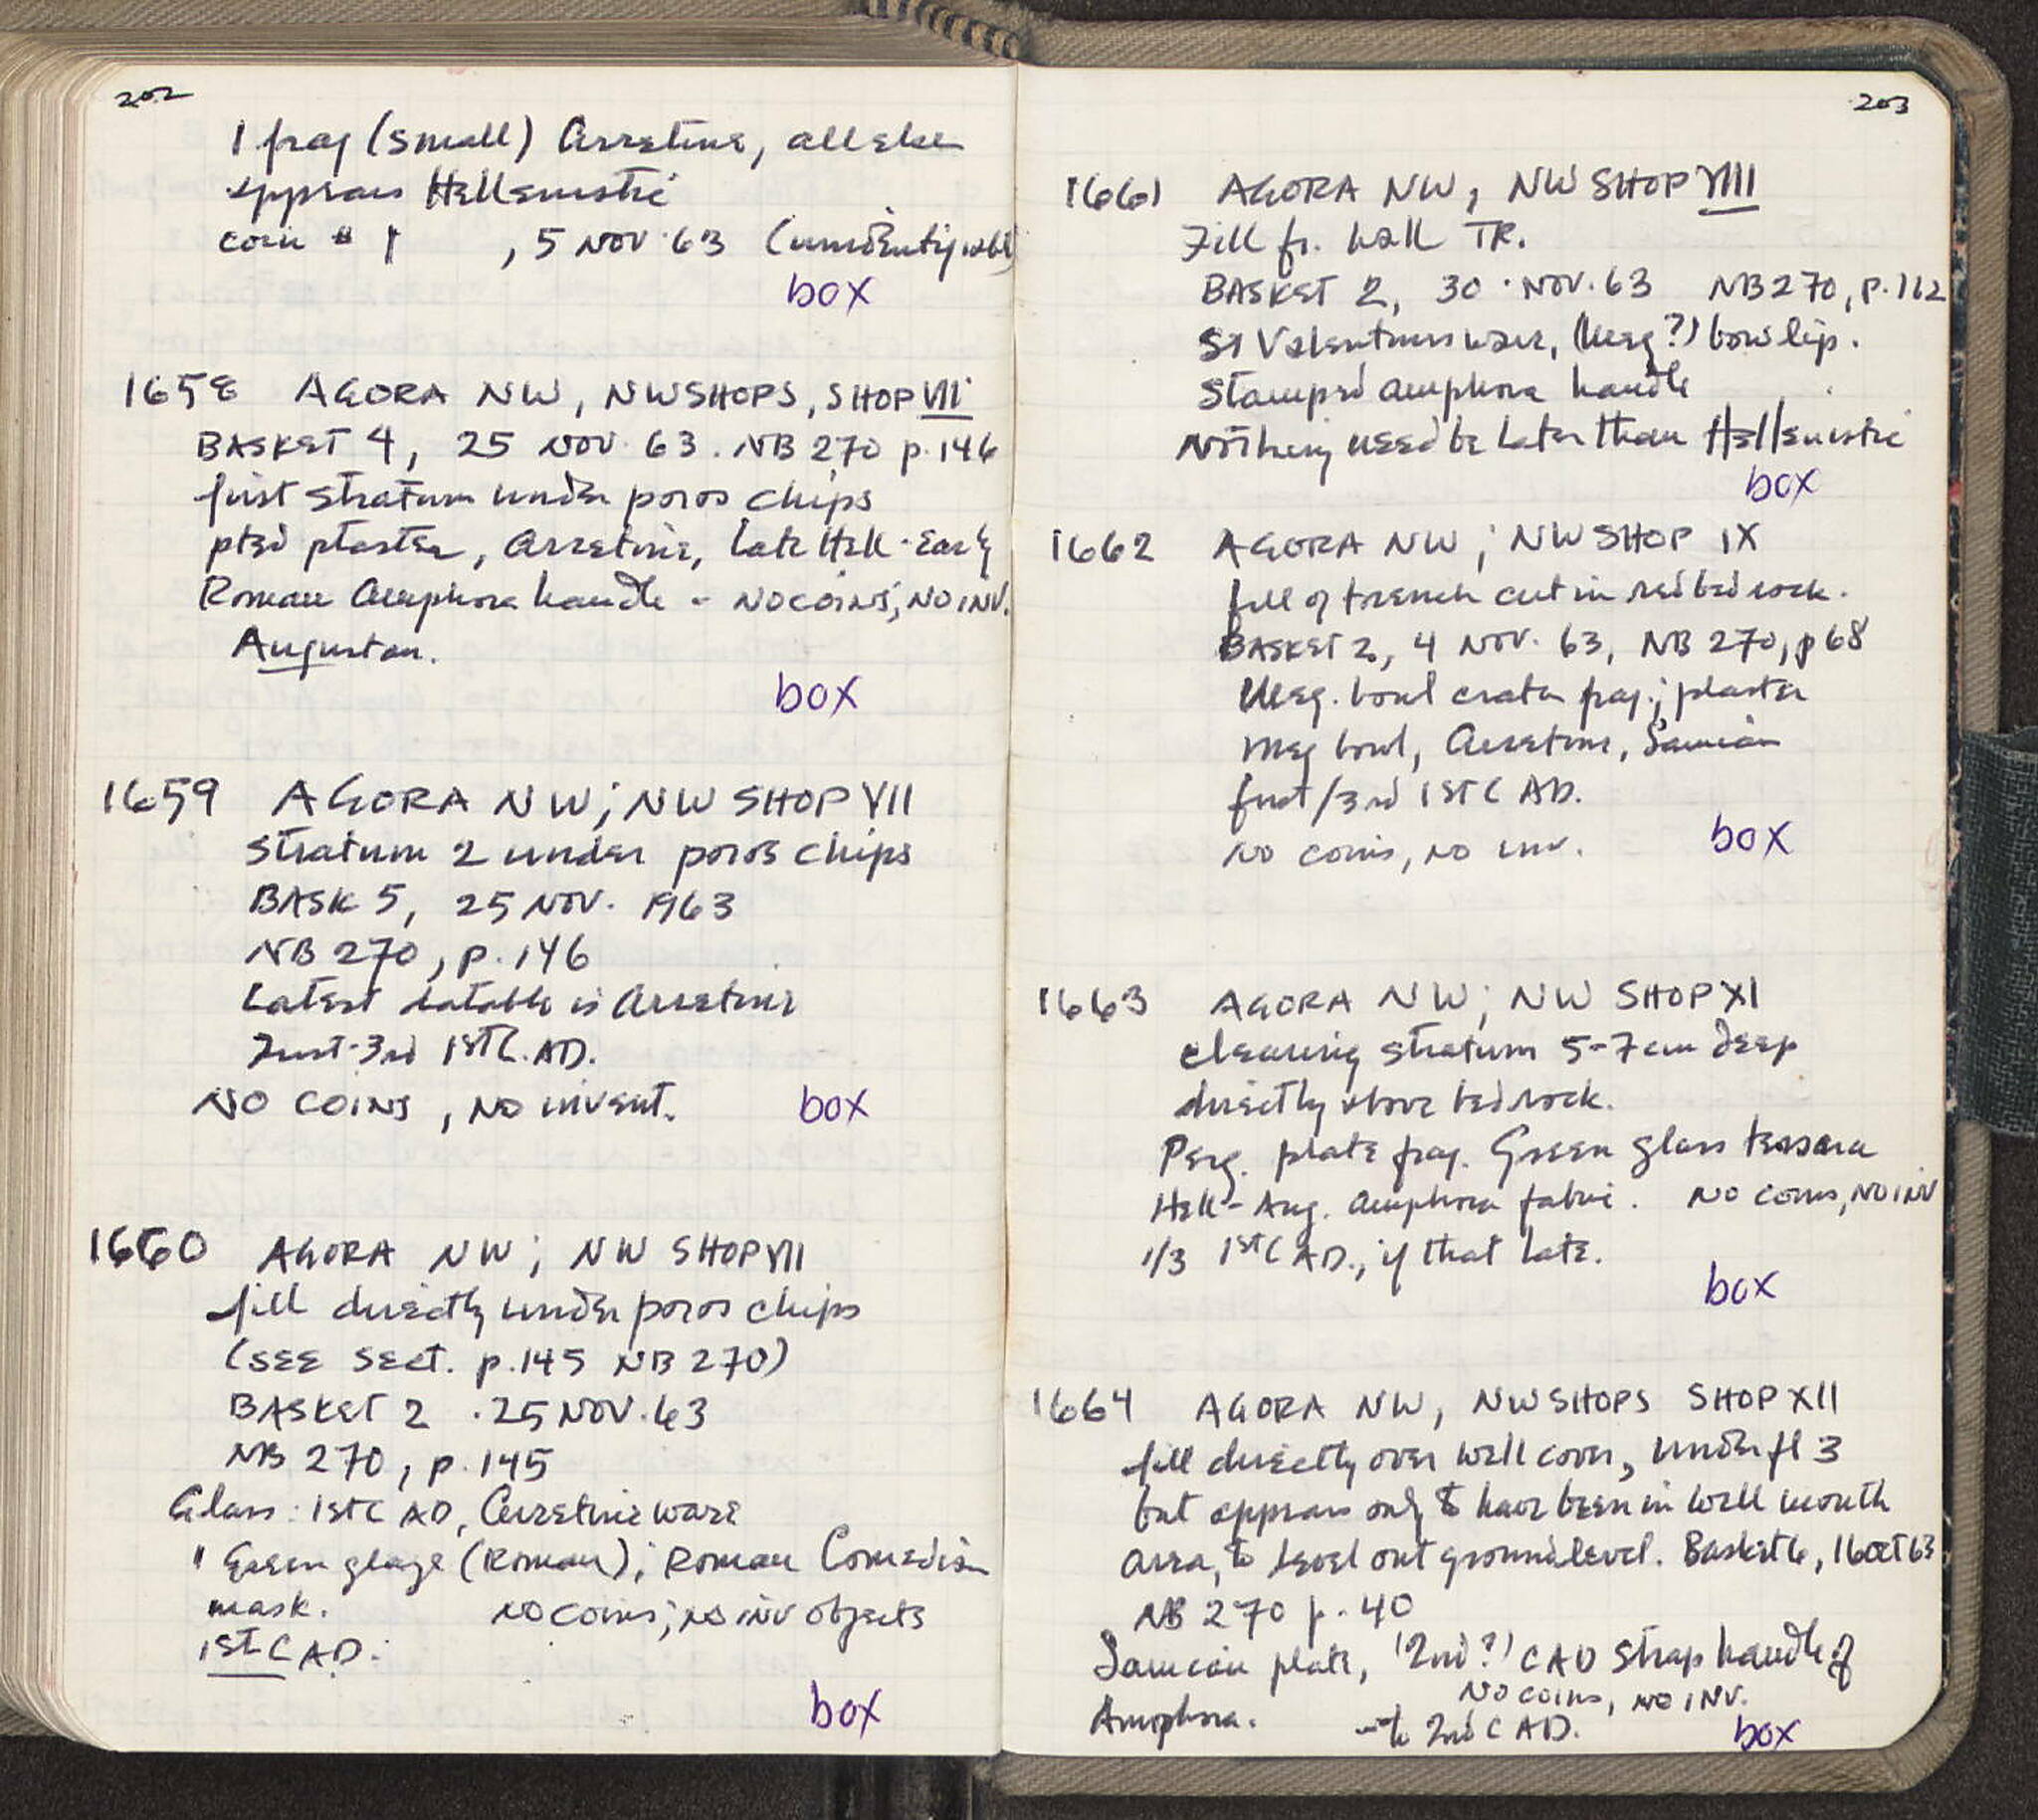 202
1 frag (small) Arretine, all else
appears Hellenistic
coin # 1 , 5 NOV. 63 (unidentifiable)
box
1658 AGORA NW, NW SHOPS, SHOP VII
BASKET 4, 25 NOV. 63. NB 270 p. 146
first stratum under poros chips
ptd plaster, Arretine, Late Hell-Early
Roman Amphora handle - NO COINS, NO INV.
Augustan.
box
1659 AGORA NW; NW SHOP VII
Stratum 2 under poros chips
BASK 5, 25 NOV. 1963
NB 270, p. 146
Latest datable is Arretine
First-3rd 1st C. AD.
NO COINS, NO invent.
box
1660 AGORA NW; NW SHOP VII
fill directly under poros chips
(SEE Sect. p. 145 NB 270)
BASKET 2 . 25 NOV. 63
NB 270, p. 145
Glass: 1st C AD, Arretine ware
1 Green glaze (Roman); Roman Comedian
mask. NO coins; NO INV objects
1st C AD.
box
203
1661 AGORA NW, NW SHOP VIIII
Fill fr. Wall TR.
BASKET 2, 30 . NOV. 63 NB 270, p. 112
St Valentines ware, (Meg?) bowl lip.
Stamped amphora handle
Nothing need be later than Hellenistic
box
1662 AGORA NW; NW SHOP IX
fill of trench cut in red bedrock.
BASKET 2, 4 NOV. 63, NB 270, p 68
Meg. bowl crater frag.; plaster
Meg bowl, Arretine, Samian
first/3rd 1st C AD.
NO coins, NO inv.
box
1663 AGORA NW; NW SHOP XI
Clearing stratum 5-7 cm deep
directly above bedrock.
Perg. plate frag. Green glass tessera
Hell-Aug. amphora fabric. NO coins, NO INV
1/3 1st C AD., if that late.
box
1664 AGORA NW, NW SHOPS SHOP XII
fill directly over well cover, under fl 3
but appears only to have been in well mouth
area, to level out ground level. Basket 6, 16 OCT 63
NB 270 p. 40
Samian plate, (2nd?) C AD Strap handle of
NO coins, NO INV.
Amphora. - to 2nd C AD.
box